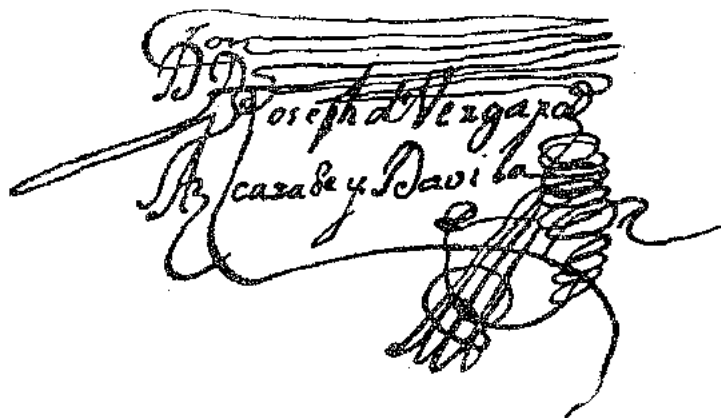 Don
Joseph d Vergara
Azcarase y Davila